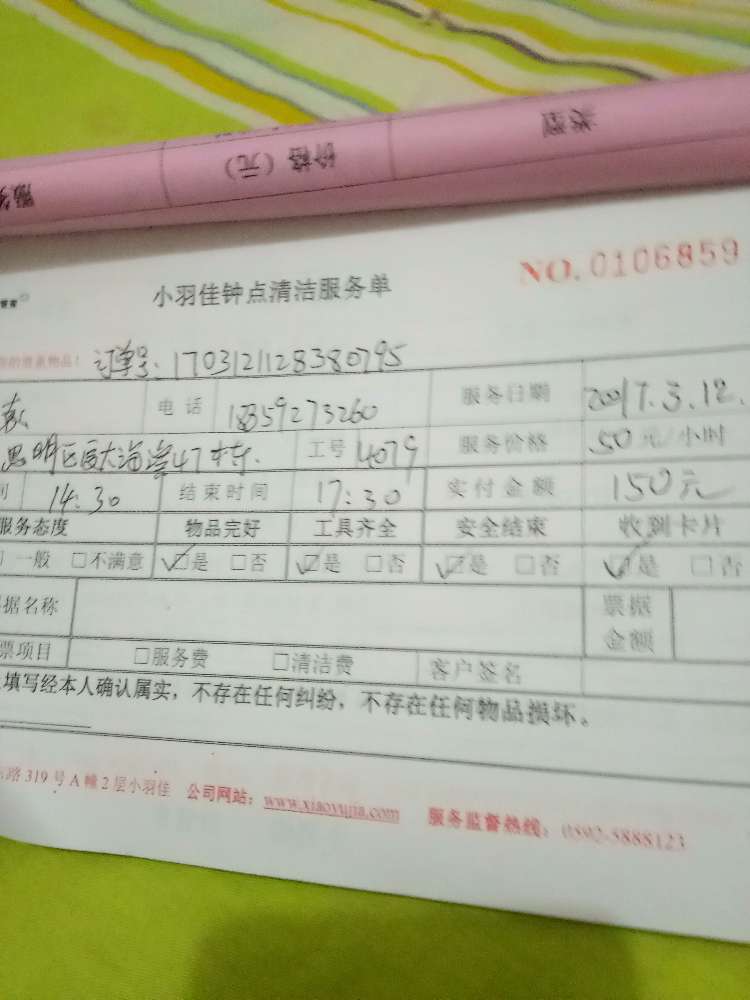 类型
价格（元）
NO. 0106859
小羽佳钟点清洁服务单
订单号：1703121128380795
电话 18359273260 服务日期 2017.3.12.
思明区厦大海滨47栋. 工号 4079 服务价格 50元/小时
14:30 结束时间 17:30 实付金额 150元
服务态度 物品完好 工具齐全 安全结束 收到卡片
一般 □不满意 ☑是 □否 ☑是 □否 ☑是 □否 ☑是 □否
据名称 票据金额
票项目 □服务费 □清洁费 客户签名
填写经本人确认属实，不存在任何纠纷，不存在任何物品损坏。
路319号A幢2层小羽佳 公司网站：www.xiaoyujia.com 服务监督热线：0592-5888123